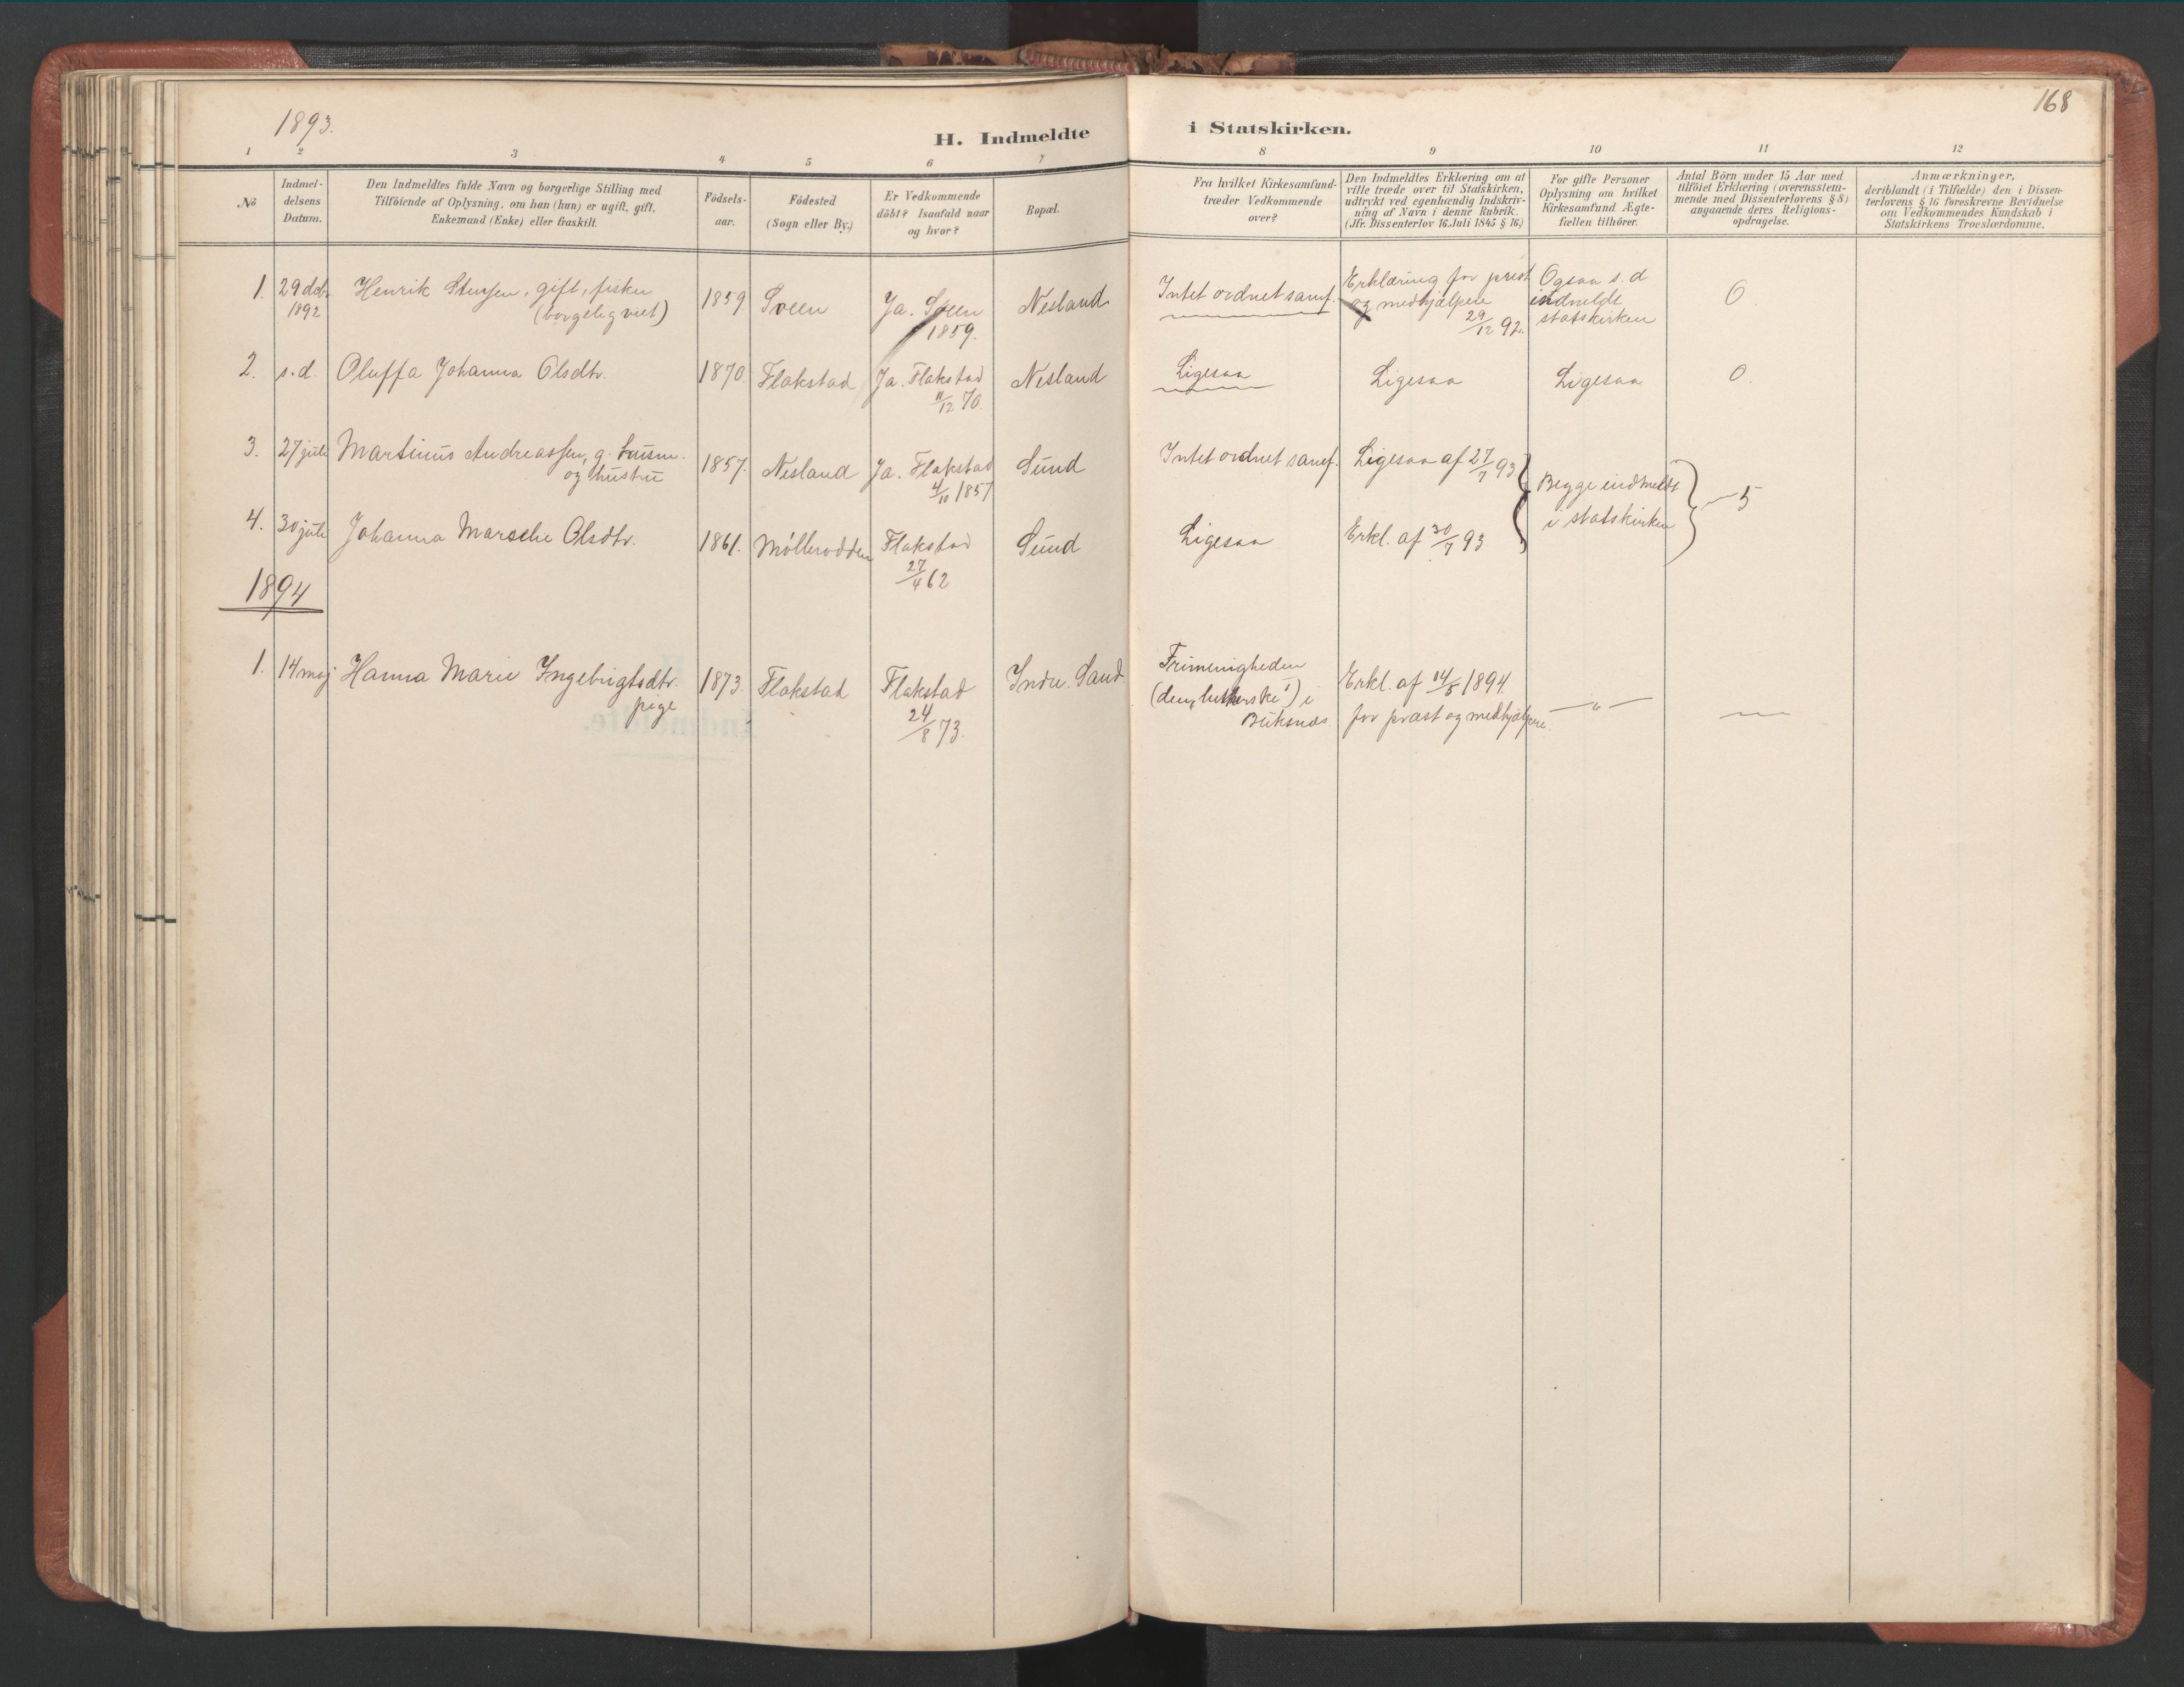 1893.
168
H. Indmeldte i Statskirken.
1 2 3 4 5 6 7 8 9 10 11 12
No
Indmel-
delsens
Datum.
Den Indmeldtes fulde Navn og borgerlige Stilling med
Tilföiende af Oplysning, om han (hun) er ugift, gift,
Enkemand (Enke) eller fraskilt.
Födsels-
aar.
Födested
(Sogn eller By.)
Er Vedkommende
döbt? Isaafald naar
og hvor?
Bopæl.
Fra hvilket Kirkesamfund
træder Vedkommende
over?
Den Indmeldtes Erklæring om at
ville træde over til Statskirken,
udtrykt ved egenhændig Indskriv-
ning af Navn i denne Rubrik.
(Jfr. Dissenterlov 16. Juli 1845 § 16.)
For gifte Personer
Oplysning om hvilket
Kirkesamfund Ægte-
fællen tilhörer.
Antal Börn under 15 Aar med
tilföiet Erklæring (overensstem-
mende med Dissenterlovens § 8)
angaaende deres Religions-
opdragelse.
Anmærkninger,
deriblandt (i Tilfælde) den i Dissen-
terlovens § 16 foreskrevne Bevidnelse
om Vedkommendes Kundskab i
Statskirkens Troeslærdomme.
1. 29 dcbr
1892
Henrik gift, fisker
(borgelig viet)
1859
Sveen
Ja. Sveen
1859.
Nesland
Intet ordnet samf.
Erklæring for prest
og medhjælpere
29/12 92.
Ogsaa s. d
indmeldt
statskirken
0.
2. s. d. Oluffa Johanna Olsdtr. 1870. Flakstad
Ja. Flakstad
11/12 70.
Nesland
Ligesaa
Ligesaa
Ligesaa
0.
3. 27 juli Martinus Andreassen, g. husm.
og hustru
1857. Nesland
Ja. Flakstad
4/10 1857
Sund
Intet ordnet samf.
Ligesaa af 27/7 93
Begge indmeldt
i statskirken
5
4. 30 juli Johanna Olsdtr. 1861. Møllerodden
Flakstad
27/4 62
Sund
Ligesaa
Erkl. af 30/7 93
1894
1. 14 maj Hanna Marie Ingebrigtsdtr.
pige
1873. Flakstad
Flakstad
24/8 73.
Indre. Sand
Frimenigheden
(den lutherske) i
Buksnæs
Erkl. af 14/5 1894
for præst og medhjælpere
—"—
—